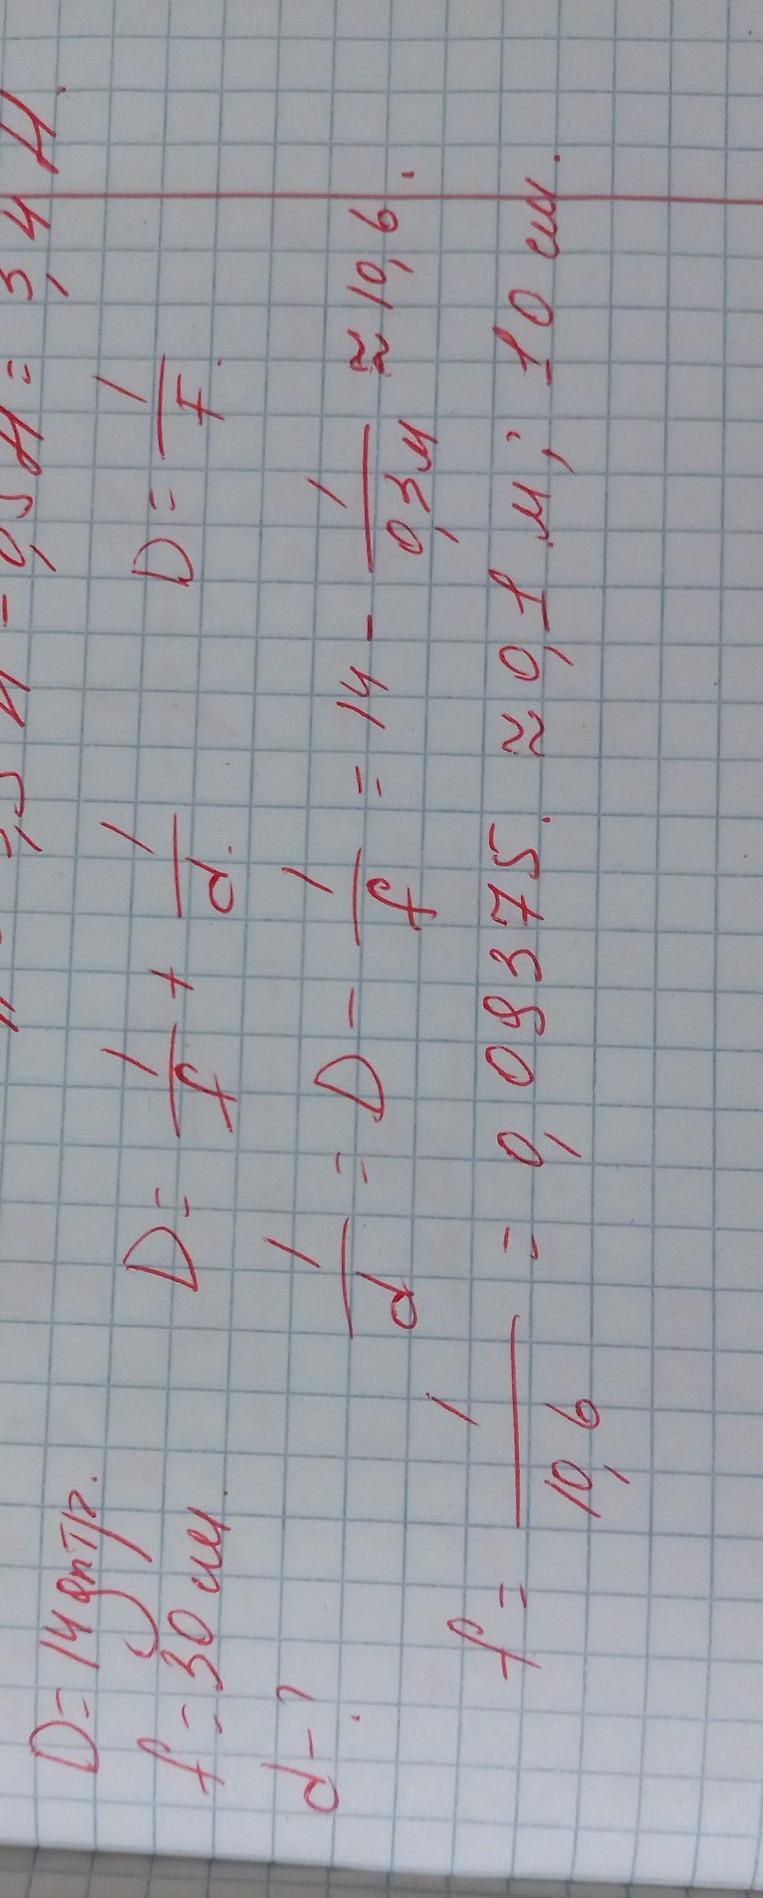 3,4 Н.
D = 14 дптр.
f = 30 см.
d - ?
D = 1/f + 1/d. D = 1/F.
1/d = D - 1/f = 14 - 1/0,3м ≈ 10,6.
f = 1/10,6 = 0,09375. ≈ 0,1 м; 10 см.